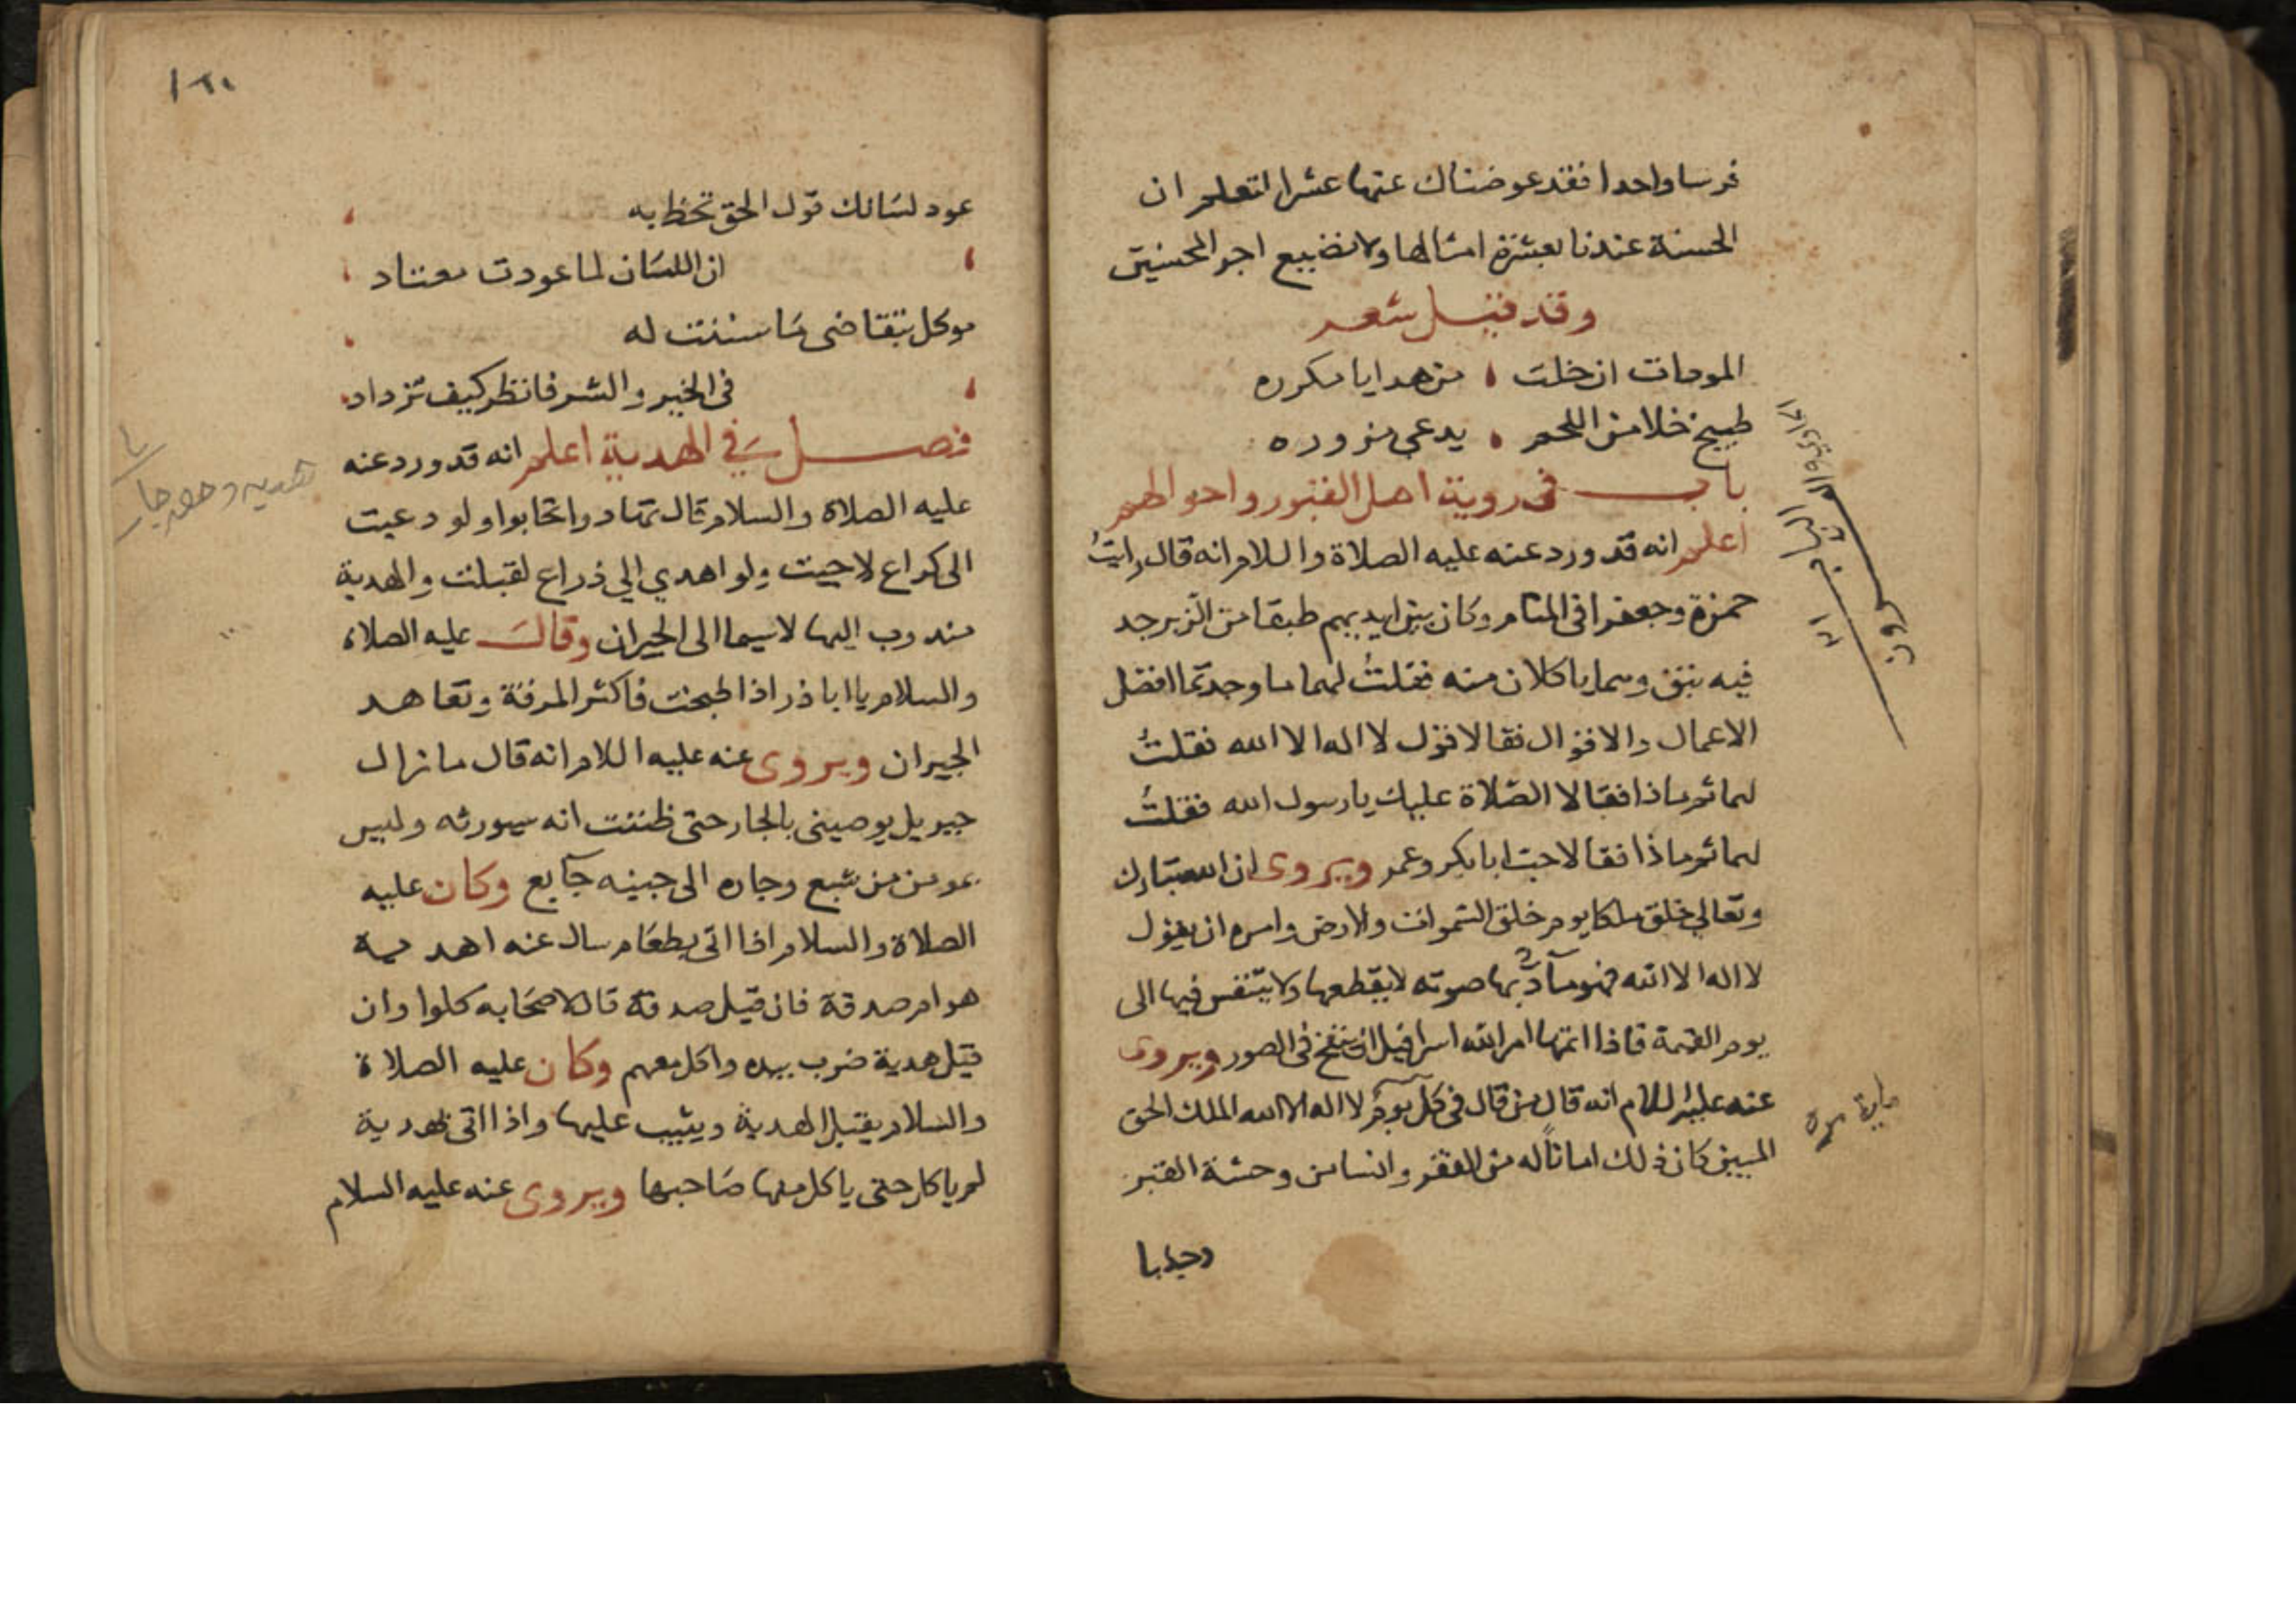 فرسا واحدا فقد عوضناك عنها عشرا لتعلم ان
الحسنة عندنا بعشرة امثالها ولا نضيع اجر المحسنين
وقد قيل شعر
المودات ان خلت ، من هدايا مكرره
طبيخ خلا من اللحم ، يدعى مزوره
باب في روية اهل القبور واحوالهم
اعلم انه قد ورد عنه عليه الصلاة والسلام انه قال رايتُ
حمزة وجعفرا في المنام وكان بين ايديهم طبقا من الزبرجد
فيه نبق وهما ياكلان منه فقلتُ لهما ما وجدتما افضل
الاعمال والاقوال فقالا قول لا اله الا الله فقلتُ
لهما ثم ماذا فقالا الصّلاة عليك يا رسول الله فقلتُ
لهما ثم ماذا فقالا حبّ ابا بكر وعمر ويروى ان الله تبارك
وتعالى خلق ملكا يوم خلق السّموات والارض وامره ان يقول
لا اله الا الله فهو مآدّ بها صوته لا يقطعها ولا يتنفس فيها الى
يوم القيمة فاذا اتمها امر الله اسرافيل ان ينفخ في الصور ويروى
عنه عليه السلام انه قال من قال في كل يوم لا اله الا الله الملك الحق
المبين كان ذلك اماناً له من الفقر وانسا من وحشة القبر
ماية مرة
١٢٠
عود لسانك قول الحق تحظ به ،
، ان اللسَان لما عودت معتاد ،
موكل بتقاضى مَا سننت له ،
، في الخير والشر فانظر كيف تزداد ،
فصل في الهدية اعلم انه قد ورد عنه
عليه الصلاة والسلام قال تهادوا تحابوا ولو دعيت
الى كراع لاجبت ولو اهدي الي ذراع لقبلت والهدية
مندوب اليها لا سيما الى الجيران وقالَ عليه الصلاة
والسلام يا ابا ذر اذا طبخت فاكثر المرقة وتعاهد
الجيران ويروى عنه عليه السلام انه قال ما زال
جبريل يوصيني بالجار حتى ظننت انه سيورثه وليس
بمومن من شبع وجاره الى جنبه جآيع وكان عليه
الصلاة والسلام اذا اتى بطعَام سال عنه اهدية
هو ام صدقة فان قيل صدقة قال لاصحَابه كلوا وان
قيل هدية ضرب بيده واكل معهم وكان عليه الصلاة
والسلام يقبل الهدية ويثيب عليها واذا اتى بهدية
لم ياكل حتى ياكل منها صَاحبها ويروى عنه عليه السلام